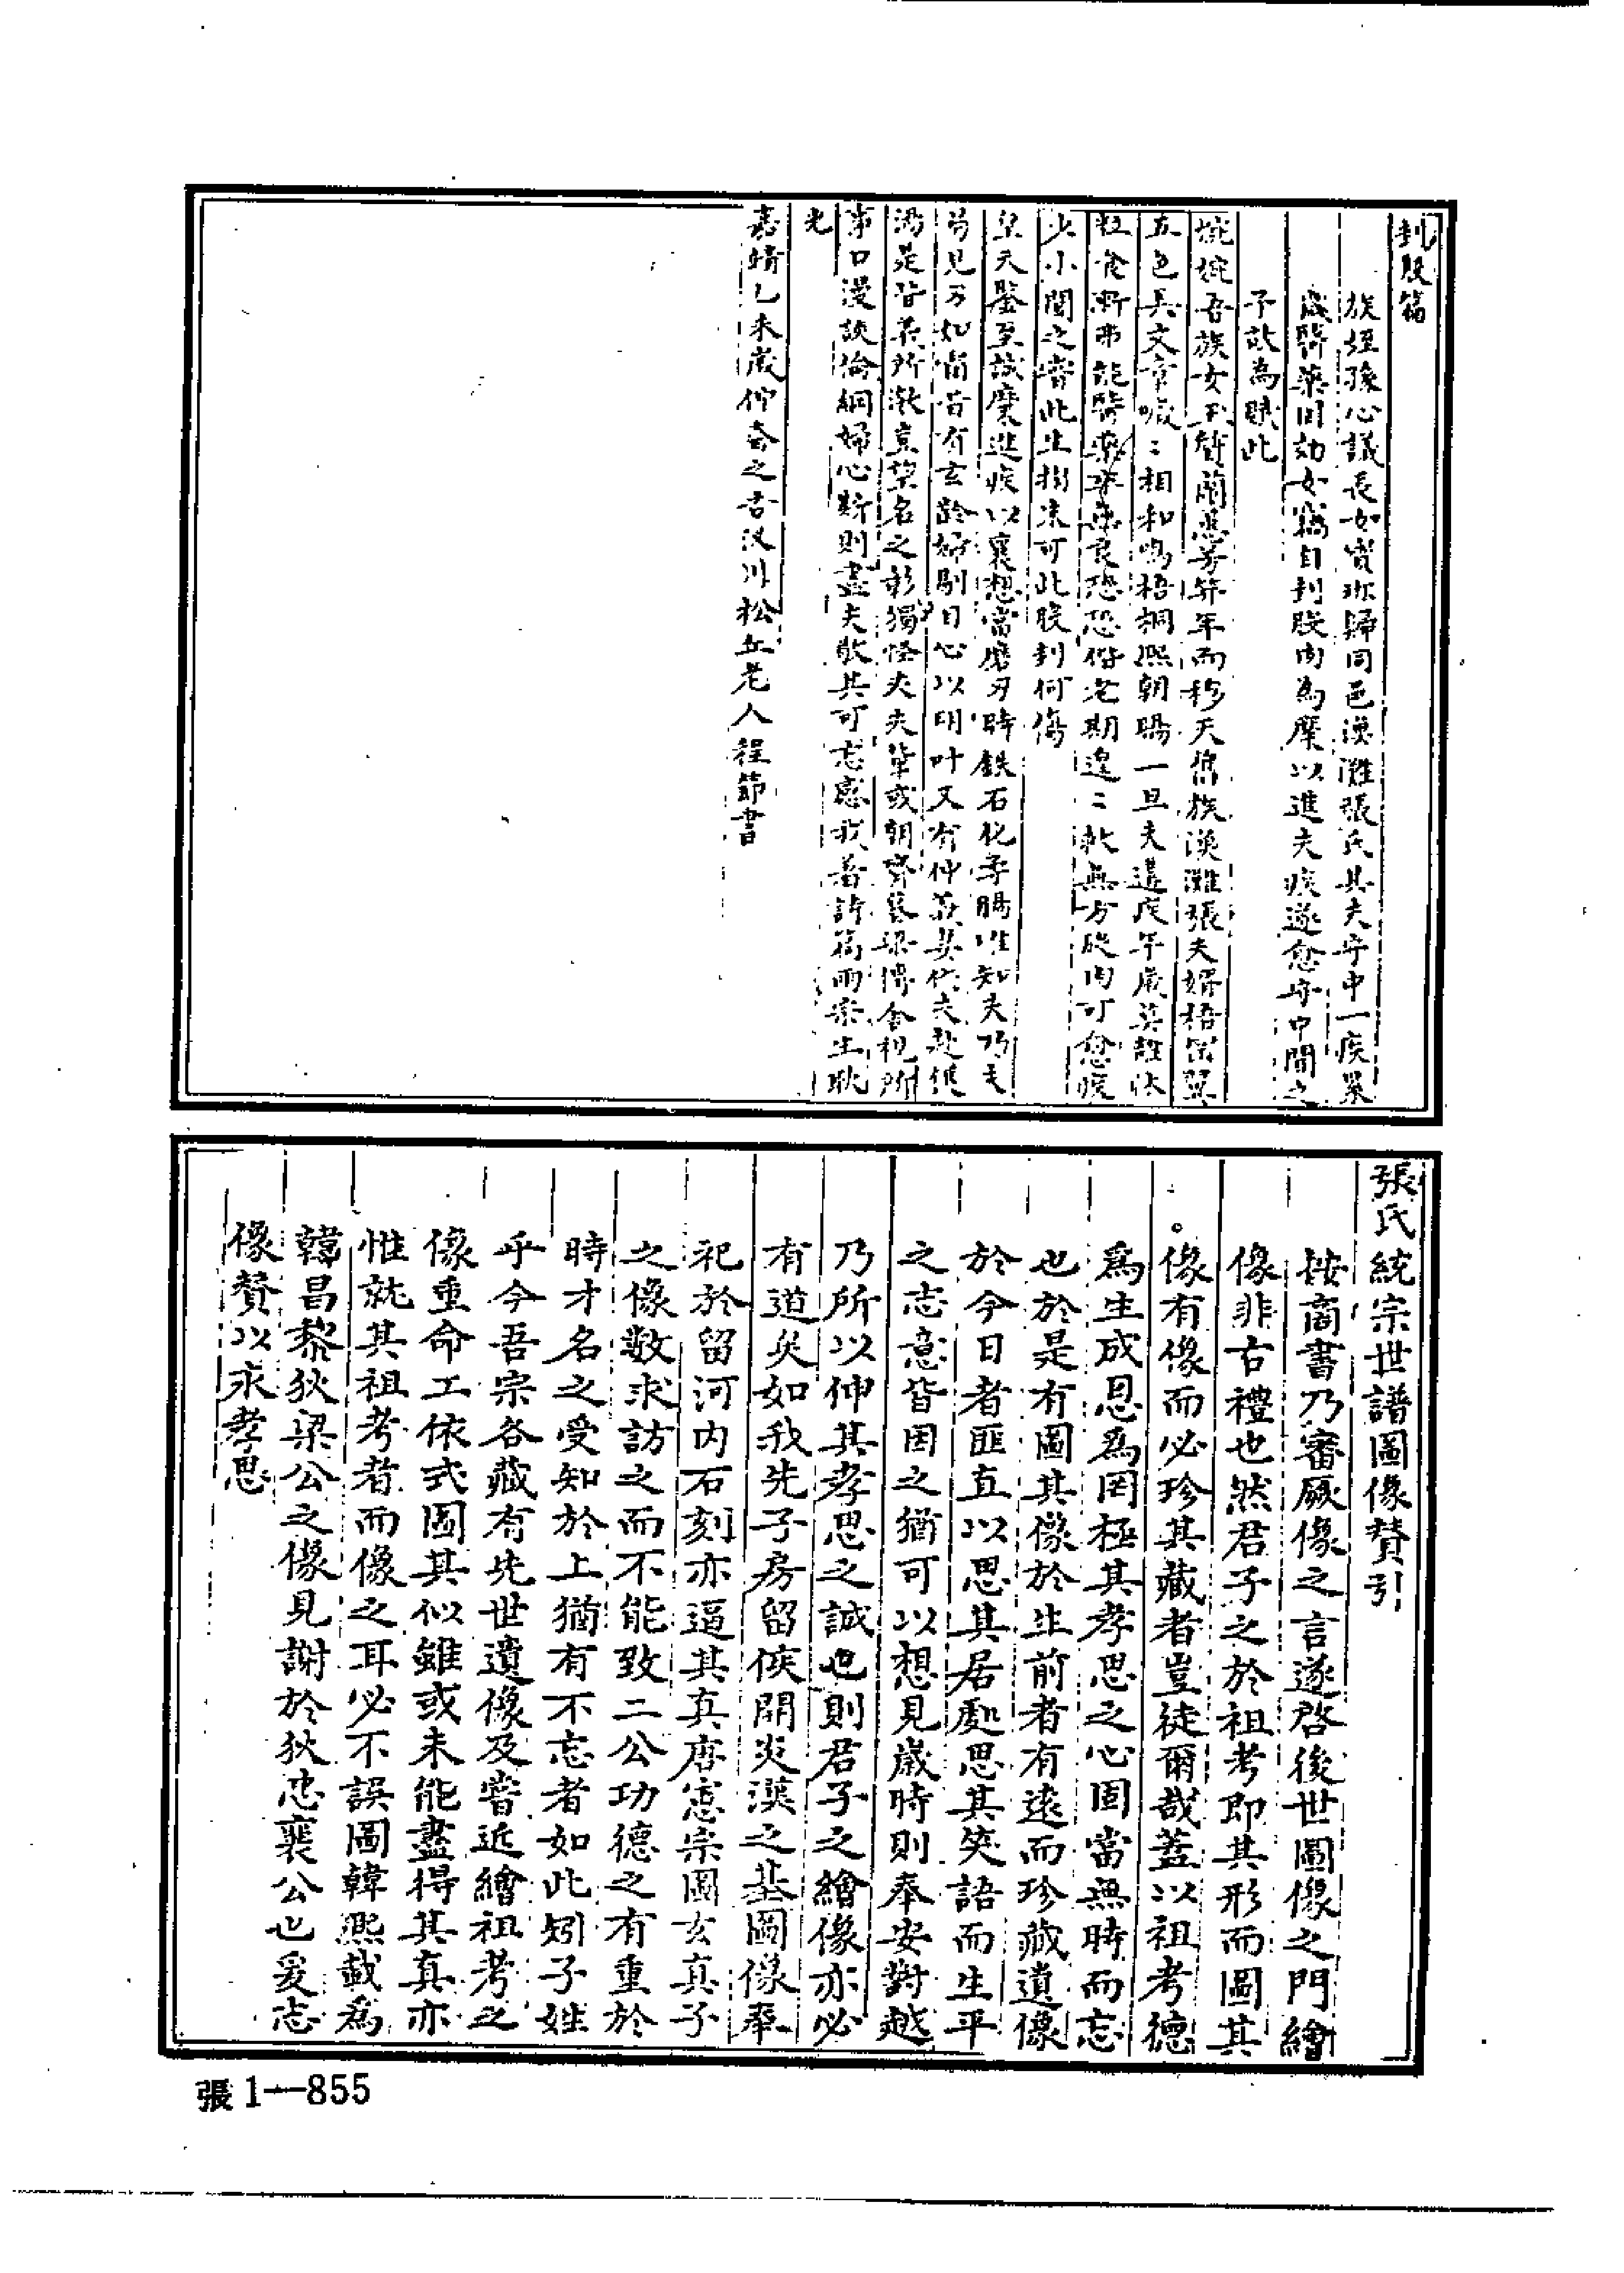 刲股篇
族姪豫心議長女賓班歸同邑漢灘張氏其夫守中一疾累
歲醫藥罔効女竊自刲股肉為糜以進夫疾遂愈守中間之
子試為賦此
婉婉吾族女玉質蘭蕙芳笄年而移天舊族漢灘張夫婿梧留翼
五色具文章喊喊相和鳴梧桐熙朝陽一旦夫遘戾年歲莫證休
粒食漸弗能醫藥率無良恐恐偕老期遑遑救無方股肉可愈疲
少小聞之嘗此生捐未可此股刲何傷
皇天鑒至誠糜進疾以襄想當磨刃時鉄石化孝腸惟知夫乃天
焉見刃如霜昔有玄齡婦剔目心以明叶又有仲 妾代夫赴俱
湯是皆 所激豈望名之彰獨怪夫夫輩或朝齊暮梁傳舍視所
事口漫談倫綱婦心斯則盡夫敬其可忘感我著詩篇兩來生耿
光
嘉靖乙未歲仲春之吉汶川松丘老人程節書
張氏統宗世譜圖像贊引
按商書乃審厥像之言遂啓後世圖像之門繪
像非古禮也然君子之於祖考即其形而圖其
像有像而必珍其藏者豈徒爾哉蓋以祖考德
爲生成恩爲罔極其孝思之心固當無時而忘
也於是有圖其像於生前者有遠而珍藏遺像
於今日者匪直以思其居處思其笑語而生平
之志意皆因之猶可以想見歲時則奉安對越
乃所以伸其孝思之誠也則君子之繪像亦必
有道矣如我先子房留侯開炎漢之基圖像奉
祀於留河内石刻亦逼其真唐憲宗圖玄真子
之像数求訪之而不能致二公功德之有重於
時才名之受知於上猶有不忘者如此矧子姓
乎今吾宗各藏有先世遺像及嘗近繪祖考之
像重命工依式圖其似雖或未能盡得其真亦
惟就其祖考者而像之耳必不誤圖韓熙載爲
韓昌黎狄梁公之像見謝於狄忠襄公也爰志
像贊以永孝思
張1—855